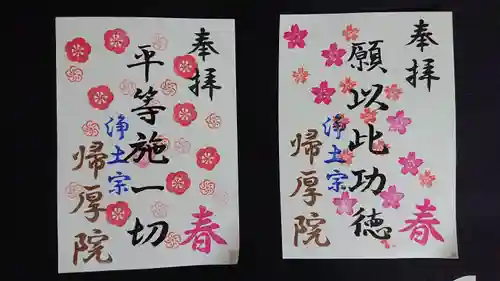 奉拝
平等施一切
浄土宗
帰厚院
春
奉拝
願以此功徳
浄土宗
帰厚院
春